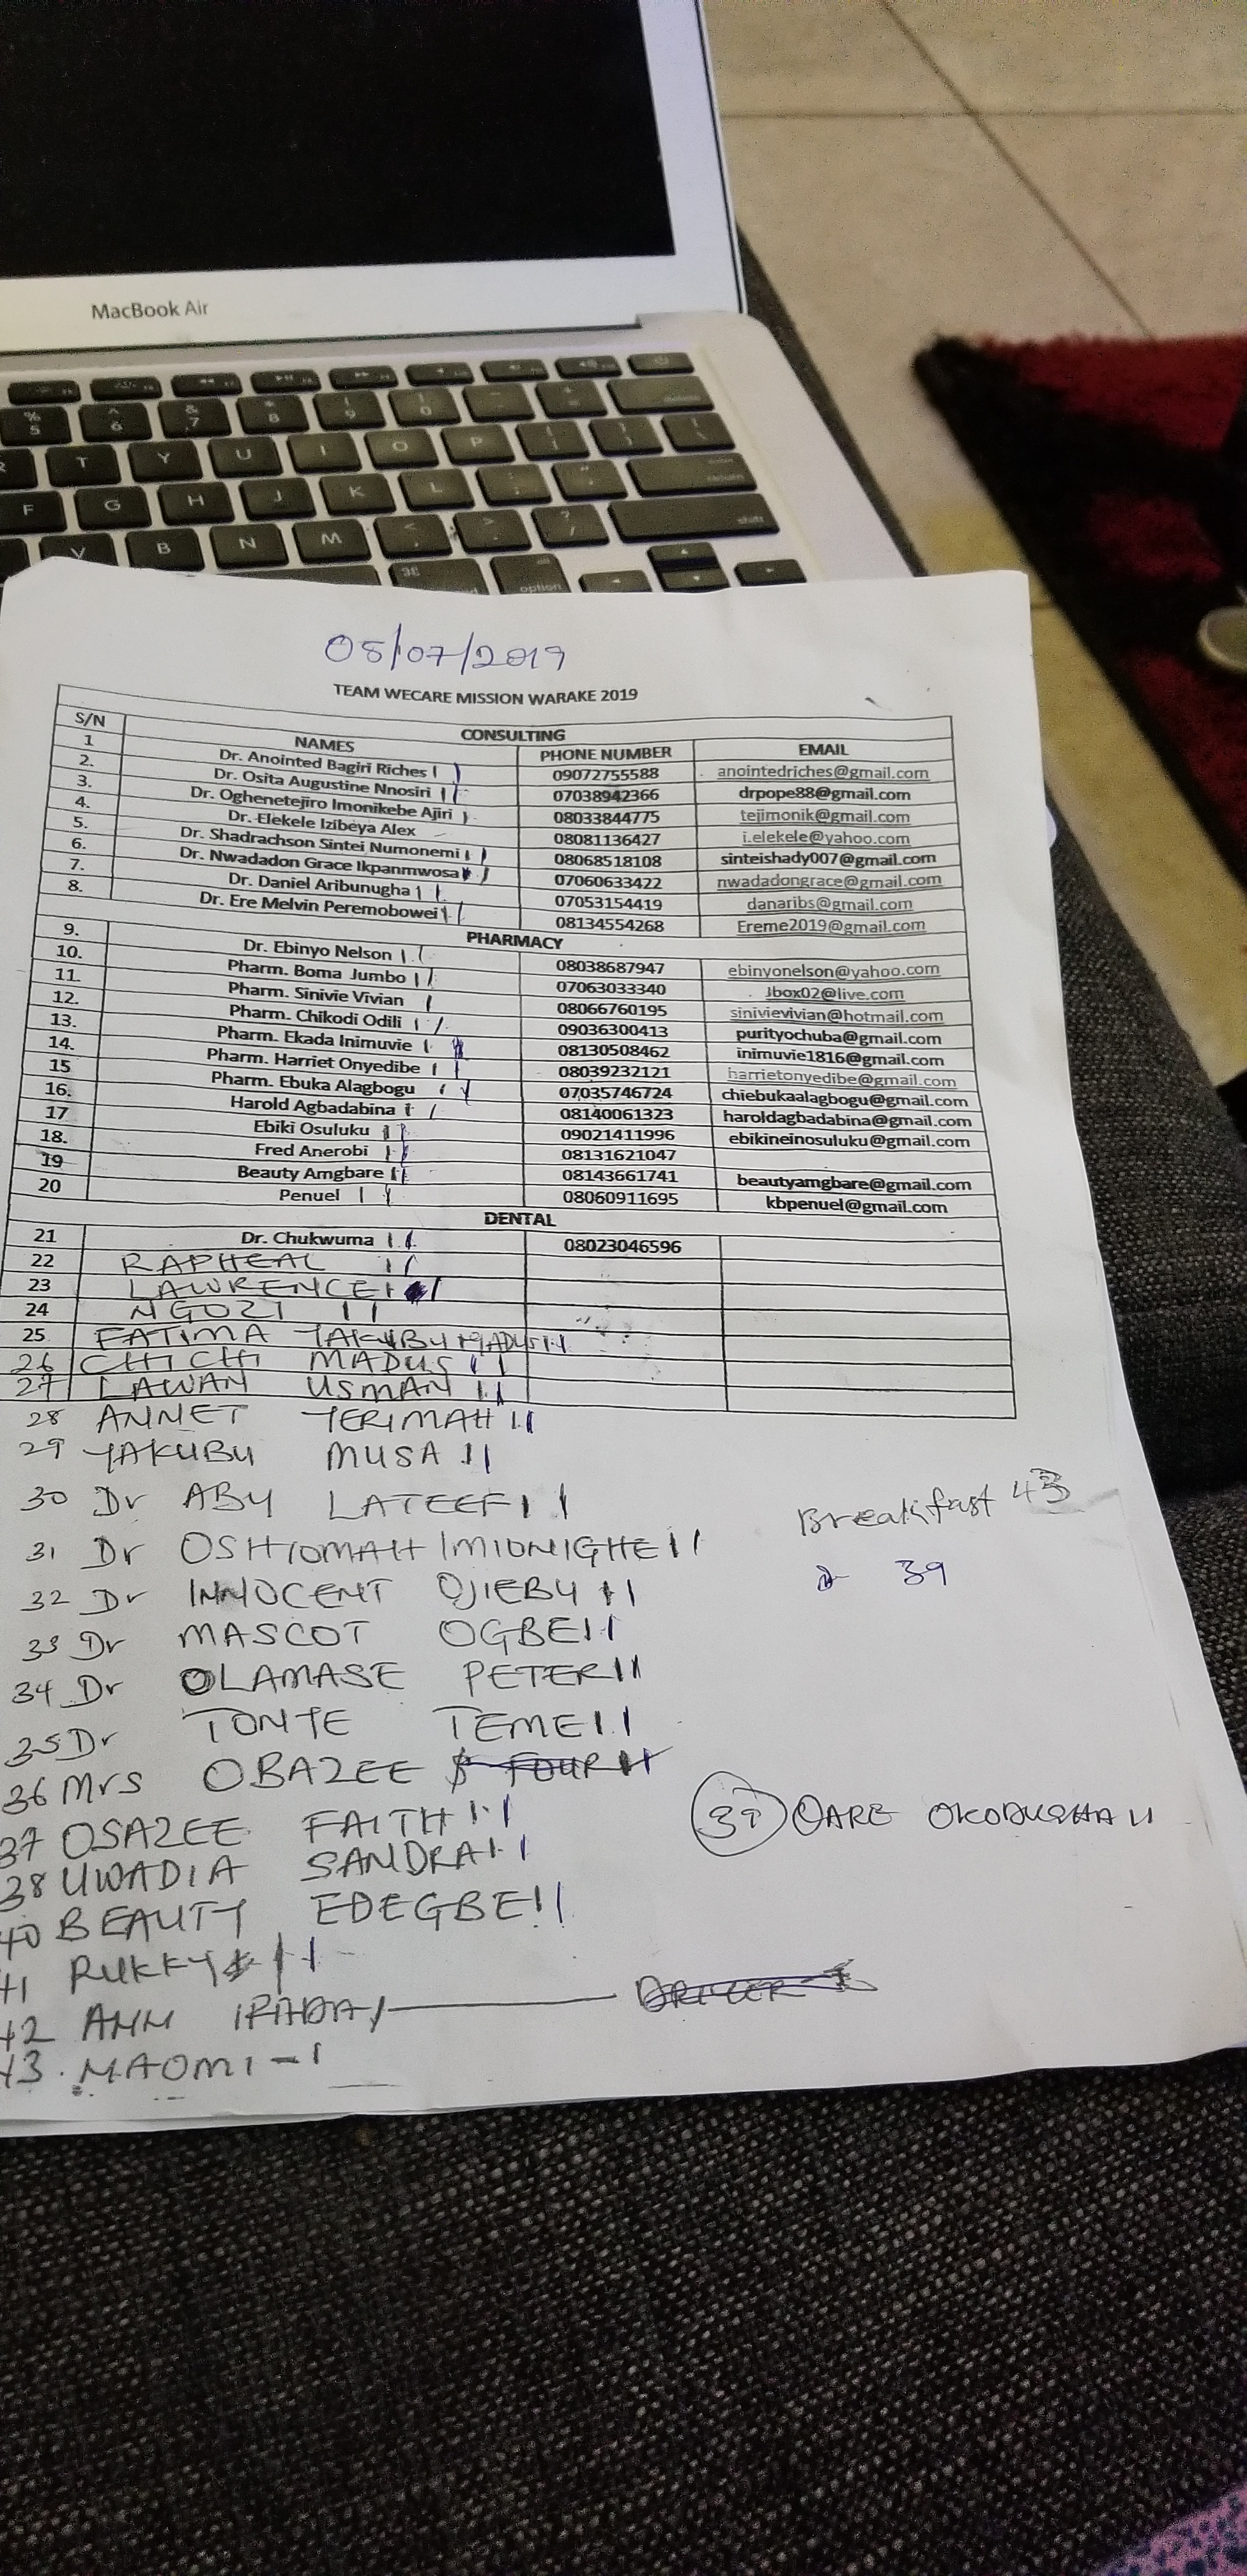 MacBook Air
05/07/2019
TEAM WECARE MISSION WARAKE 2019
CONSULTING
S/N NAMES PHONE NUMBER EMAIL
1 Dr. Anointed Bagiri Riches 09072755588 anointedriches@gmail.com
2. Dr. Osita Augustine Nnosiri 07038942366 drpope88@gmail.com
3. Dr. Oghenetejiro Imonikebe Ajiri 08033844775 tejimonik@gmail.com
4. Dr. Elekele Izibeya Alex 08081136427 i.elekele@yahoo.com
5. Dr. Shadrachson Sintei Numonemi 08068518108 sinteishady007@gmail.com
6. Dr. Nwadadon Grace Ikpanmwosa 07060633422 nwadadongrace@gmail.com
7. Dr. Daniel Aribunugha 07053154419 danaribs@gmail.com
8. Dr. Ere Melvin Peremobowei 08134554268 Ereme2019@gmail.com
PHARMACY
9. Dr. Ebinyo Nelson 08038687947 ebinyonelson@yahoo.com
10. Pharm. Boma Jumbo 07063033340 Jbox02@live.com
11. Pharm. Sinivie Vivian 08066760195 sinivievivian@hotmail.com
12. Pharm. Chikodi Odili 09036300413 purityochuba@gmail.com
13. Pharm. Ekada Inimuvie 08130508462 inimuvie1816@gmail.com
14. Pharm. Harriet Onyedibe 08039232121 harrietonyedibe@gmail.com
15 Pharm. Ebuka Alagbogu 07035746724 chiebukaalagbogu@gmail.com
16. Harold Agbadabina 08140061323 haroldagbadabina@gmail.com
17 Ebiki Osuluku 09021411996 ebikineinosuluku@gmail.com
18. Fred Anerobi 08131621047
19 Beauty Amgbare 08143661741 beautyamgbare@gmail.com
20 Penuel 08060911695 kbpenuel@gmail.com
DENTAL
21 Dr. Chukwuma 08023046596
22 RAPHEAL
23 LAWRENCE
24 NGOZI
25 FATIMA YAKUBU
26 CHI CHI MADUS
27 LAWAN USMAN
28 ANNET YERIMAH
29 YAKUBU MUSA
30 Dr ABU LATEEF
31 Dr OSHIOMAH IMIONIGHE
32 Dr INNOCENT OJIEBU
33 Dr MASCOT OGBE
34 Dr OLAMASE PETER
35 Dr TONTE TEME
36 Mrs OBAZEE
37 OSAZEE FAITH
38 UWADIA SANDRA
40 BEAUTY EDEGBE
41 RUKKY
42 ANN
43. NAOMI
Breakfast 43
39
39 OARE